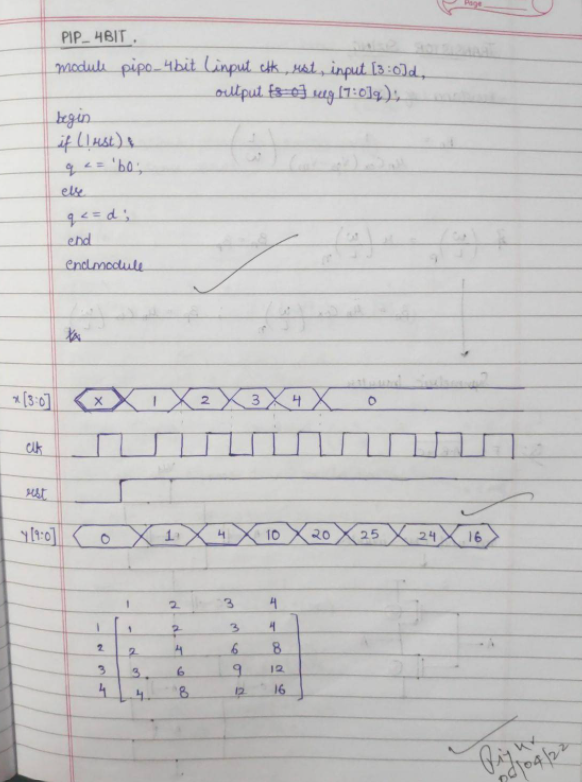 Page
PIP_4BIT.
module pipo_4bit (input clk, rst, input [3:0]d,
output [3:0] reg [7:0]q);
begin
if (!rst)
q <= 'b0;
else
q <= d;
end
endmodule
x[3:0] X 1 2 3 4 0
clk
rst
y[9:0] 0 1 4 10 20 25 24 16
1 2 3 4
1 1 2 3 4
2 2 4 6 8
3 3. 6 9 12
4 4. 8 12 16